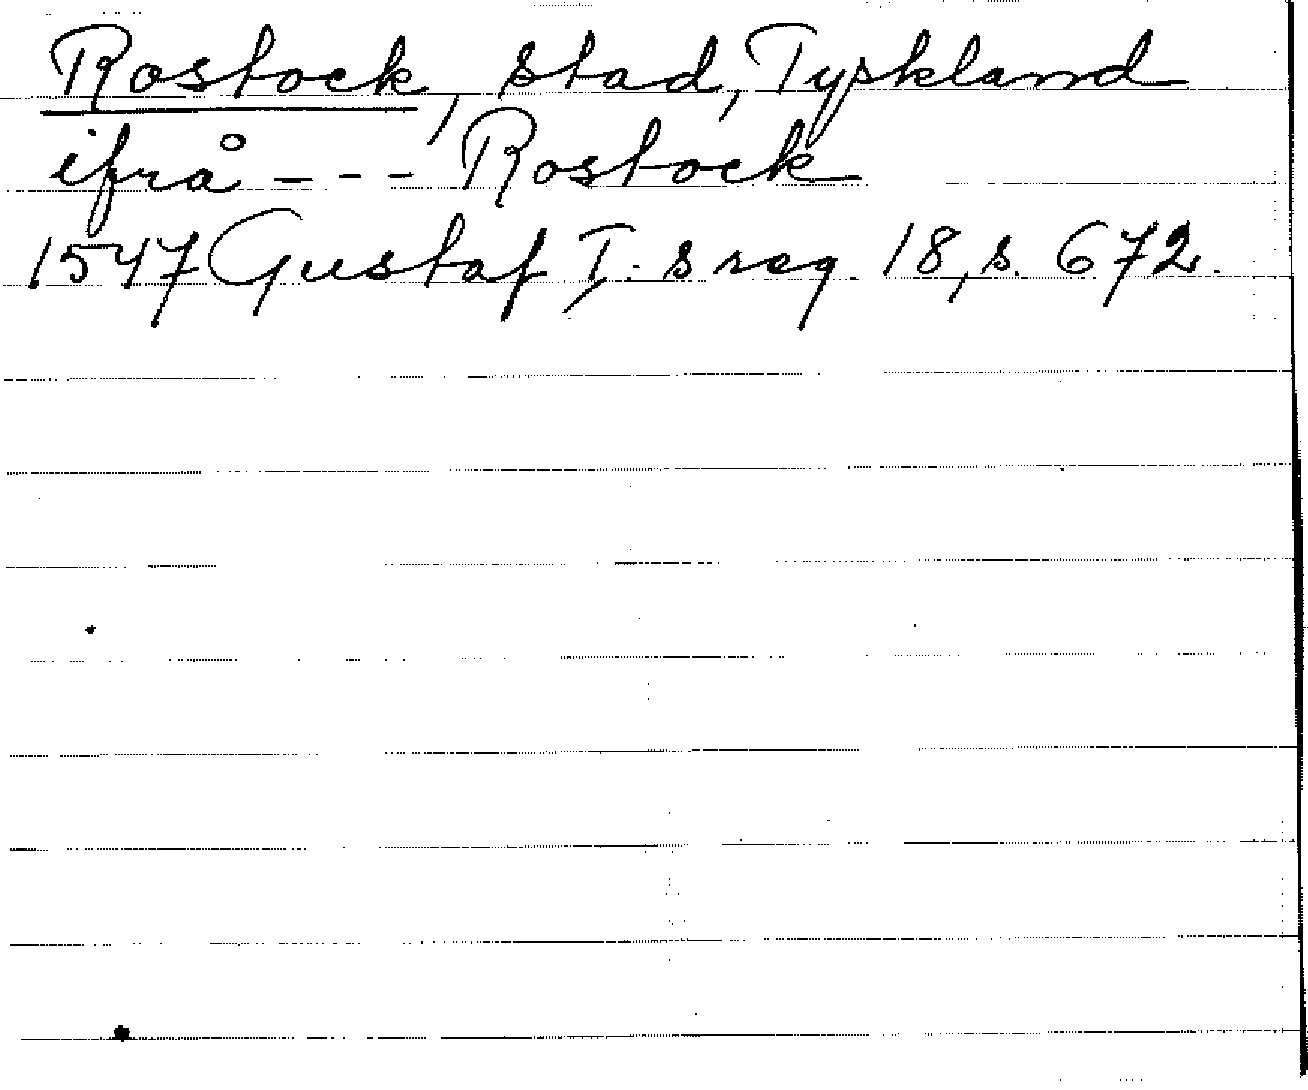 Rostock, stad, Tyskland
ifrå - - - Rostock
1547 Gustaf I. s reg. 18, s. 672.